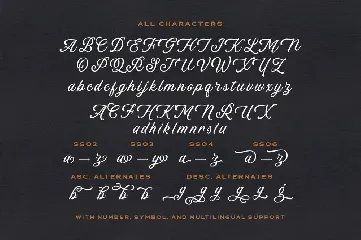 ALL CHARACTERS
ABCDEFGHIJKLMN
OPQRSTUVWXYZ
abcdefghijklmnopqrstuvwxyz
ACFHKMNRUX
adhiklmnrstu
SS02 SS03 SS04 SS06
a — z a — y a — z a — z
ASC. ALTERNATES DESC. ALTERNATES
b b b b
WITH NUMBER, SYMBOL, AND MULTILINGUAL SUPPORT